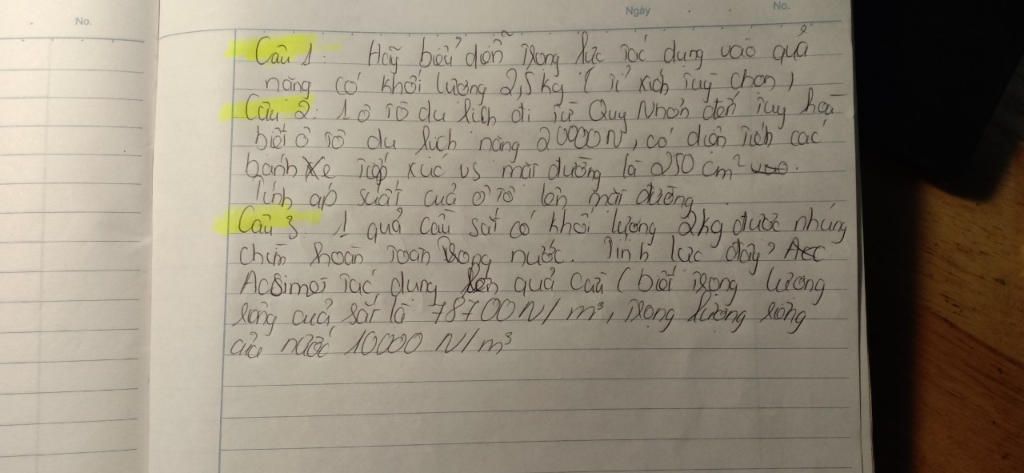 No.
Ngày No.
Câu 1: Hãy biểu diễn trọng lực tác dụng vào quả
nặng có khối lượng 2,5kg (tỉ xích tuỳ chọn)
Câu 2: 1 ô tô du lịch đi từ Quy Nhơn đến Tuy hoà
biết ô tô du lịch nặng 20000N, có diện tích các
bánh xe tiếp xúc vs mặt đường là 250 cm²
Tính áp suất của ô tô lên mặt đường
Câu 3. 1 quả cầu sắt có khối lượng 2kg được nhúng
chìm hoàn toàn trong nước. Tính lực đẩy? Acc
Acsimet tác dụng lên quả cầu (biết trọng lượng
riêng của sắt là 78700N/m³, trọng lượng riêng
của nước 10000 N/m³